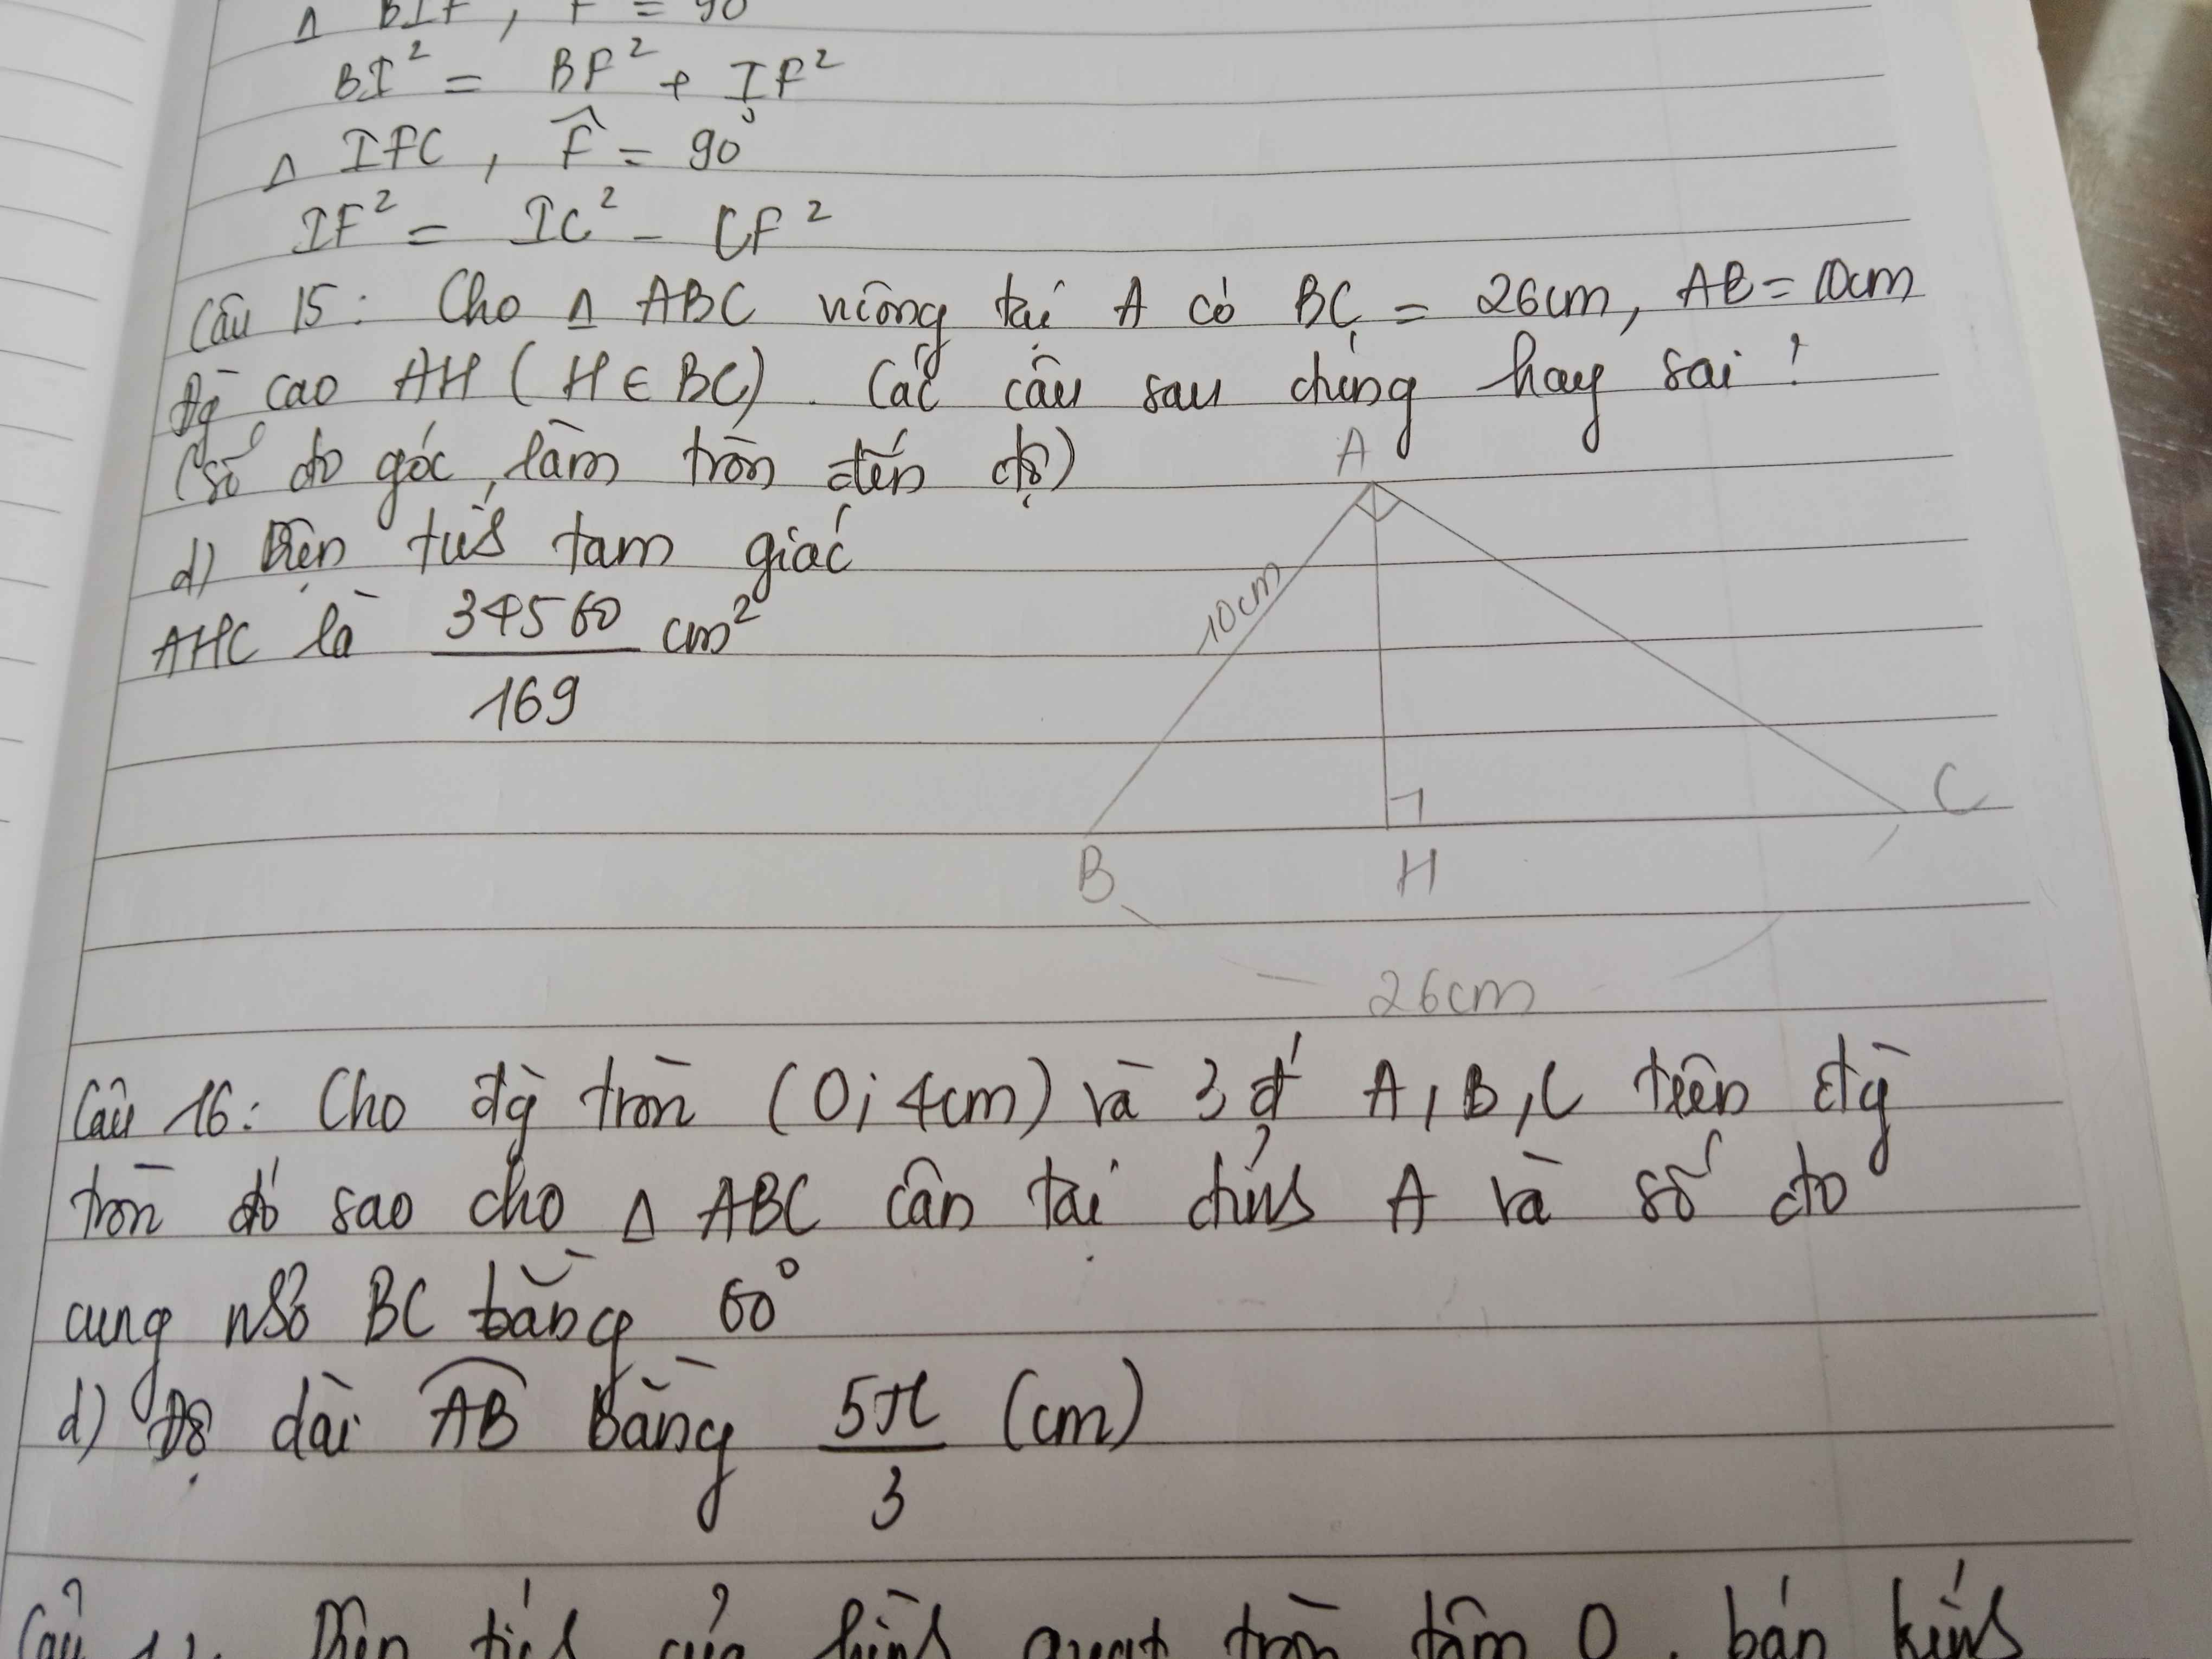 Δ BIF, F = 90
BI² = BF² + IF²
Δ IFC, F̂ = 90°
IF² = IC² - CF²
Câu 15: Cho Δ ABC vuông tại A có BC = 26cm, AB = 10cm
Đg̀ cao AH (H ∈ BC). Các câu sau đúng hay sai?
(số đo góc làm tròn đến độ)
A
d) Diện tíc̉h tam giác
10cm
AHC là 34560/169 cm²
C
B
H
26cm
Câu 16: Cho đg̀ tròn (O; 4cm) và 3 đ' A, B, C trên đg̀
tròn đó sao cho Δ ABC cân tại đỉnh A và số đo
cung nhỏ BC bằng 60°
d) Độ dài A͡B bằng 5π/3 (cm)
Diện tích của hình quạt tròn tâm O, bán kính